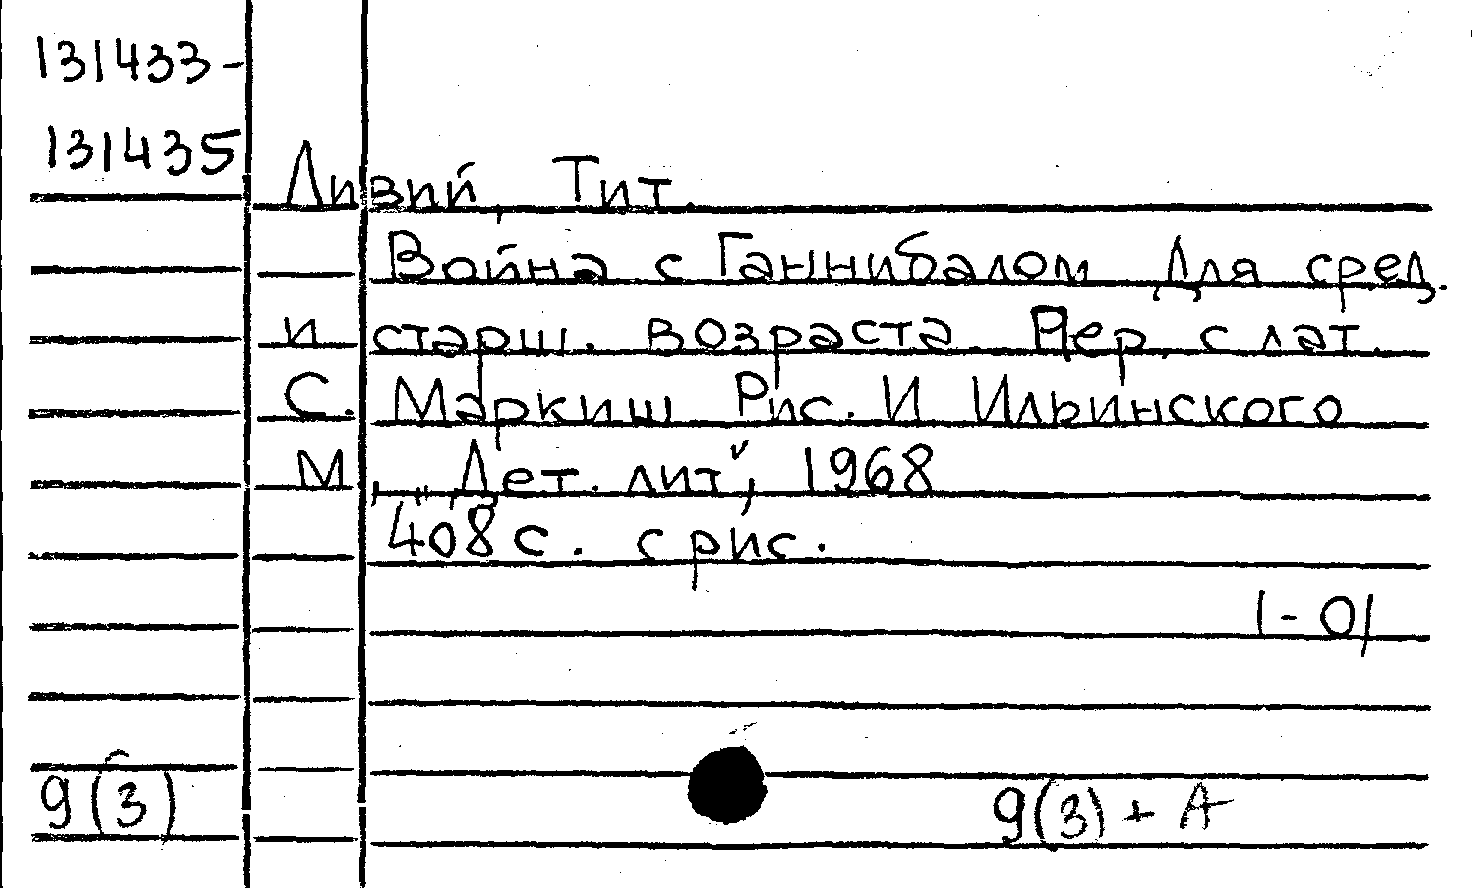 131433-
131435
Ливий, Тит.
Война с Ганнибалом Для сред.
и старш. возраста. Пер. с лат.
С. Маркиш Рис. И Ильинского
М., „Дет. лит", 1968
408 с. с рис.
1-01
9(3)
9(3) + А